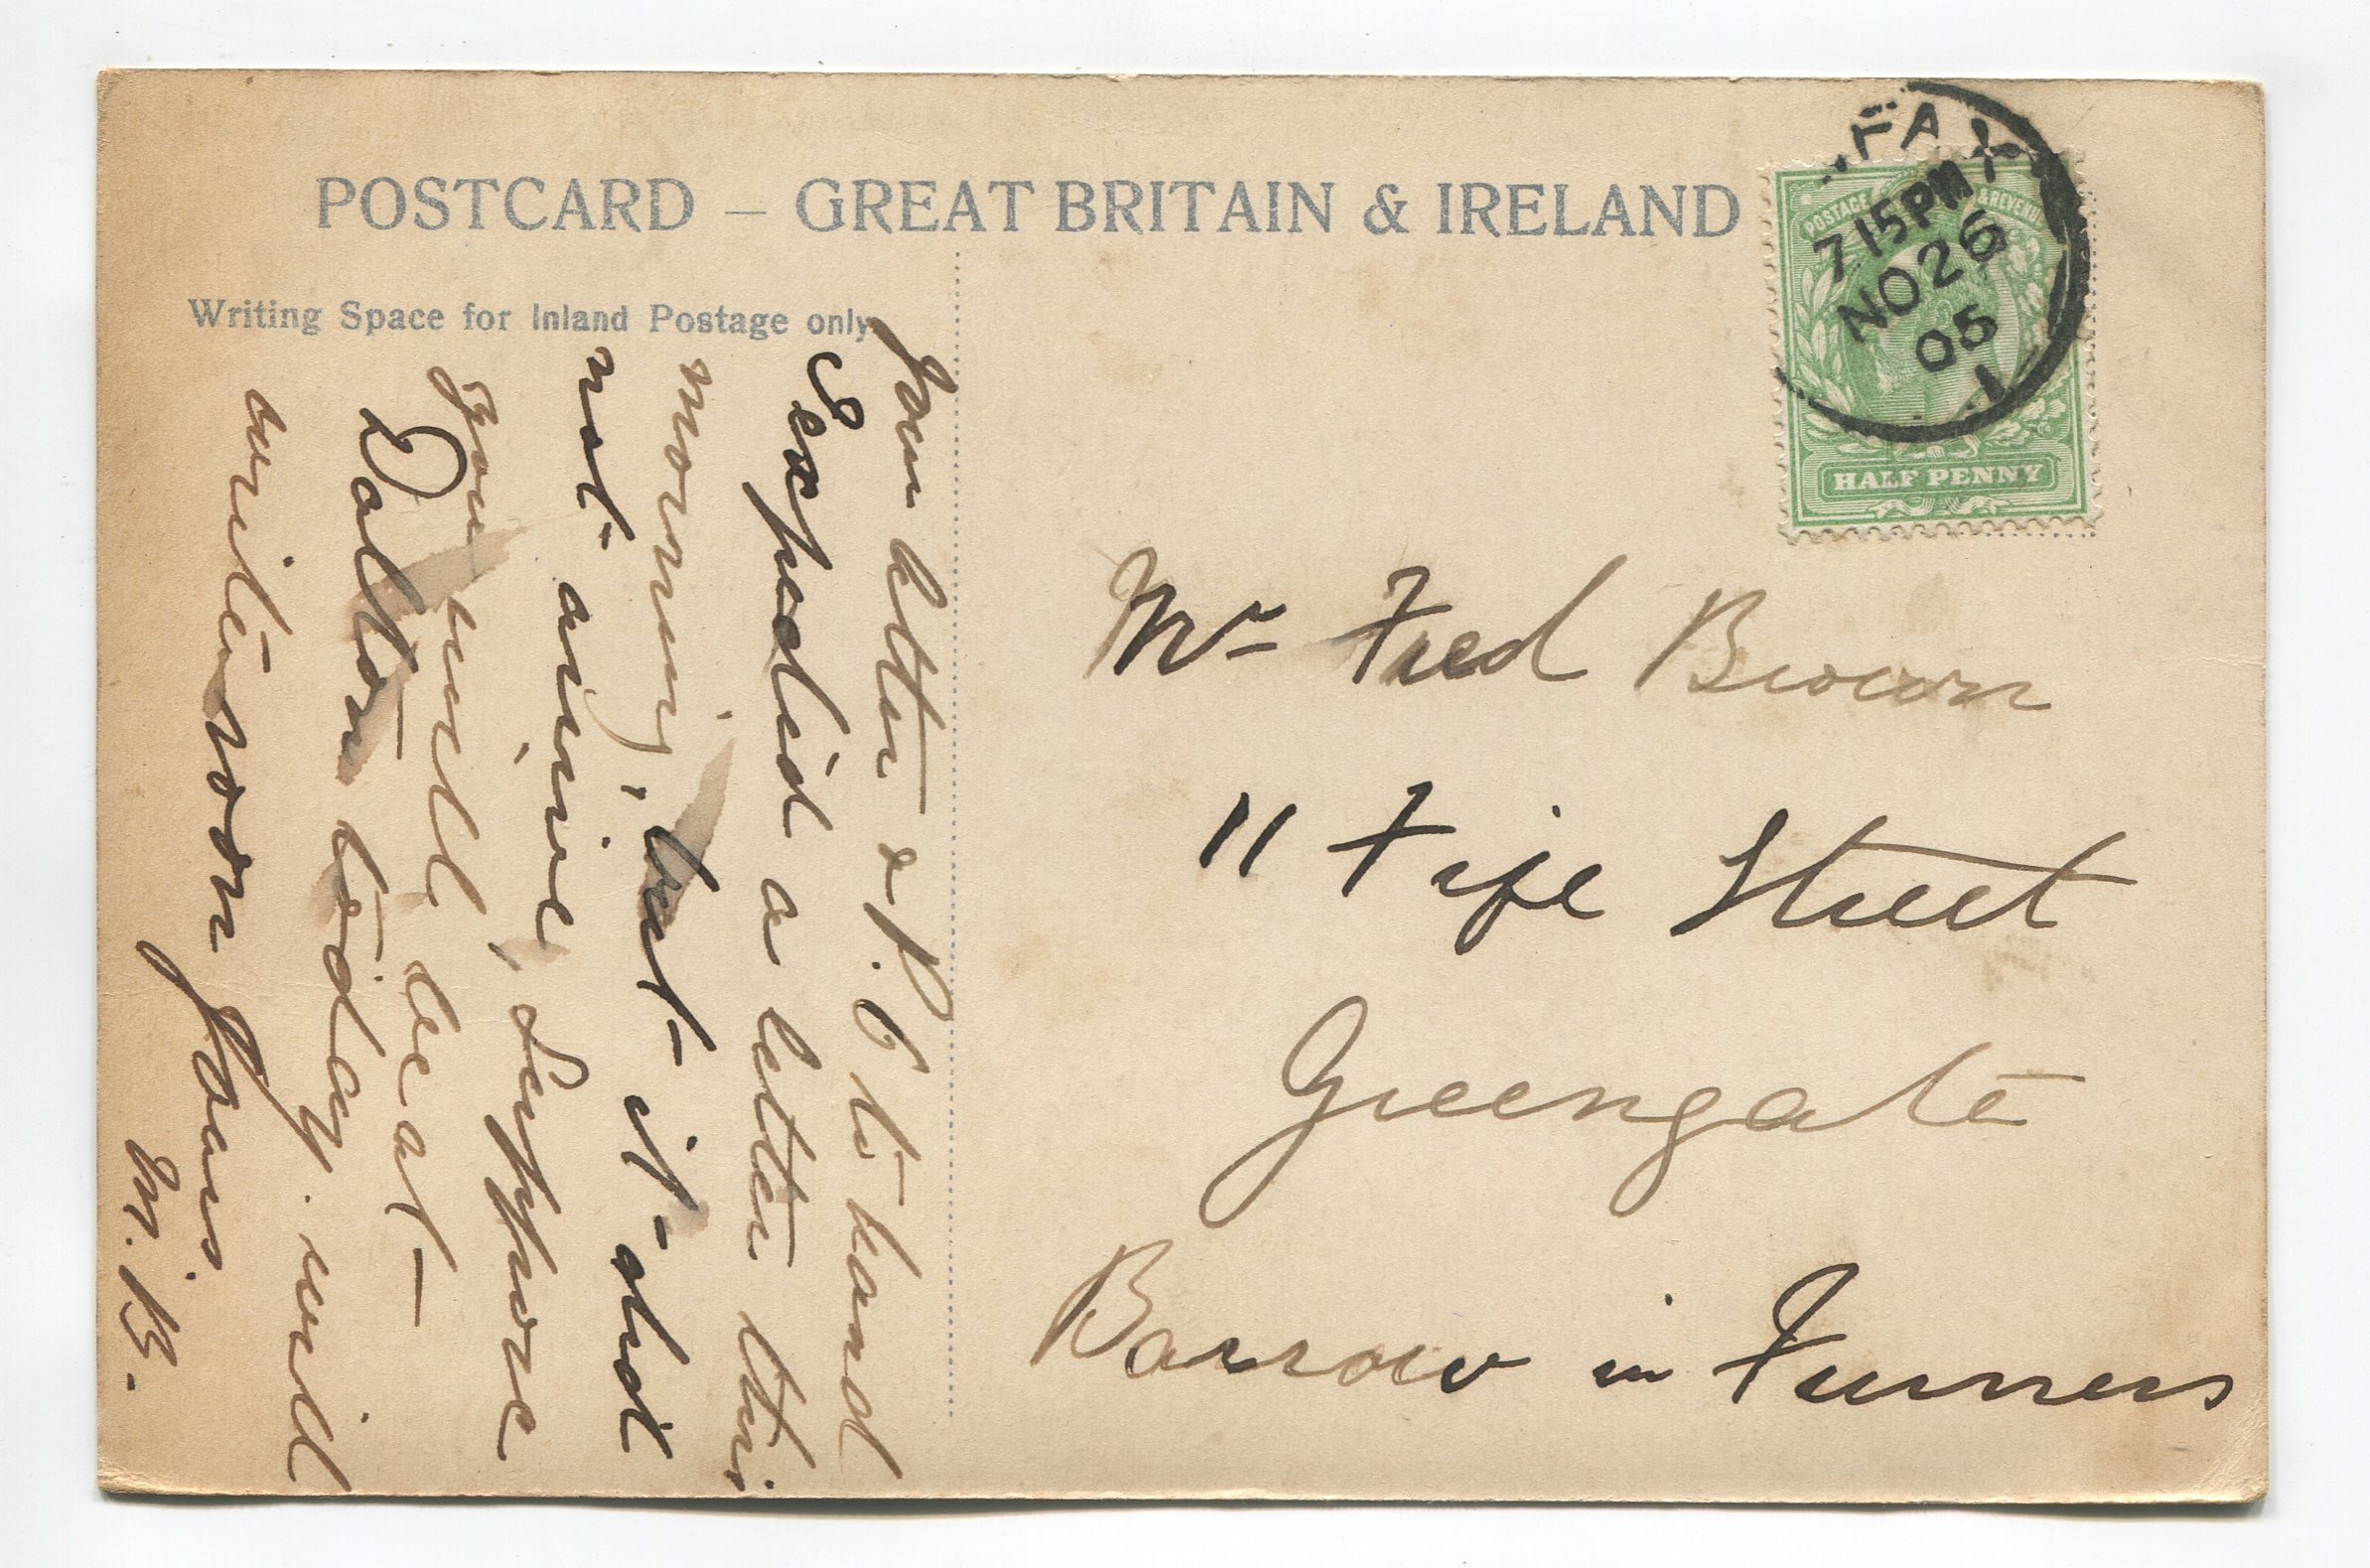 POSTCARD – GREAT BRITAIN & IRELAND
Writing Space for Inland Postage only
Your letter & P.C to hand
I expected a letter this
morning, but it did
not arrive, suppose
you will be at
Dalton today. will
write soon Yours
M.B.
FAX
7 15PM
NO 26
05
1
POSTAGE & REVENUE
HALF PENNY
Mr Fred Brown
11 Fife Street
Greengate
Barrow in Furness